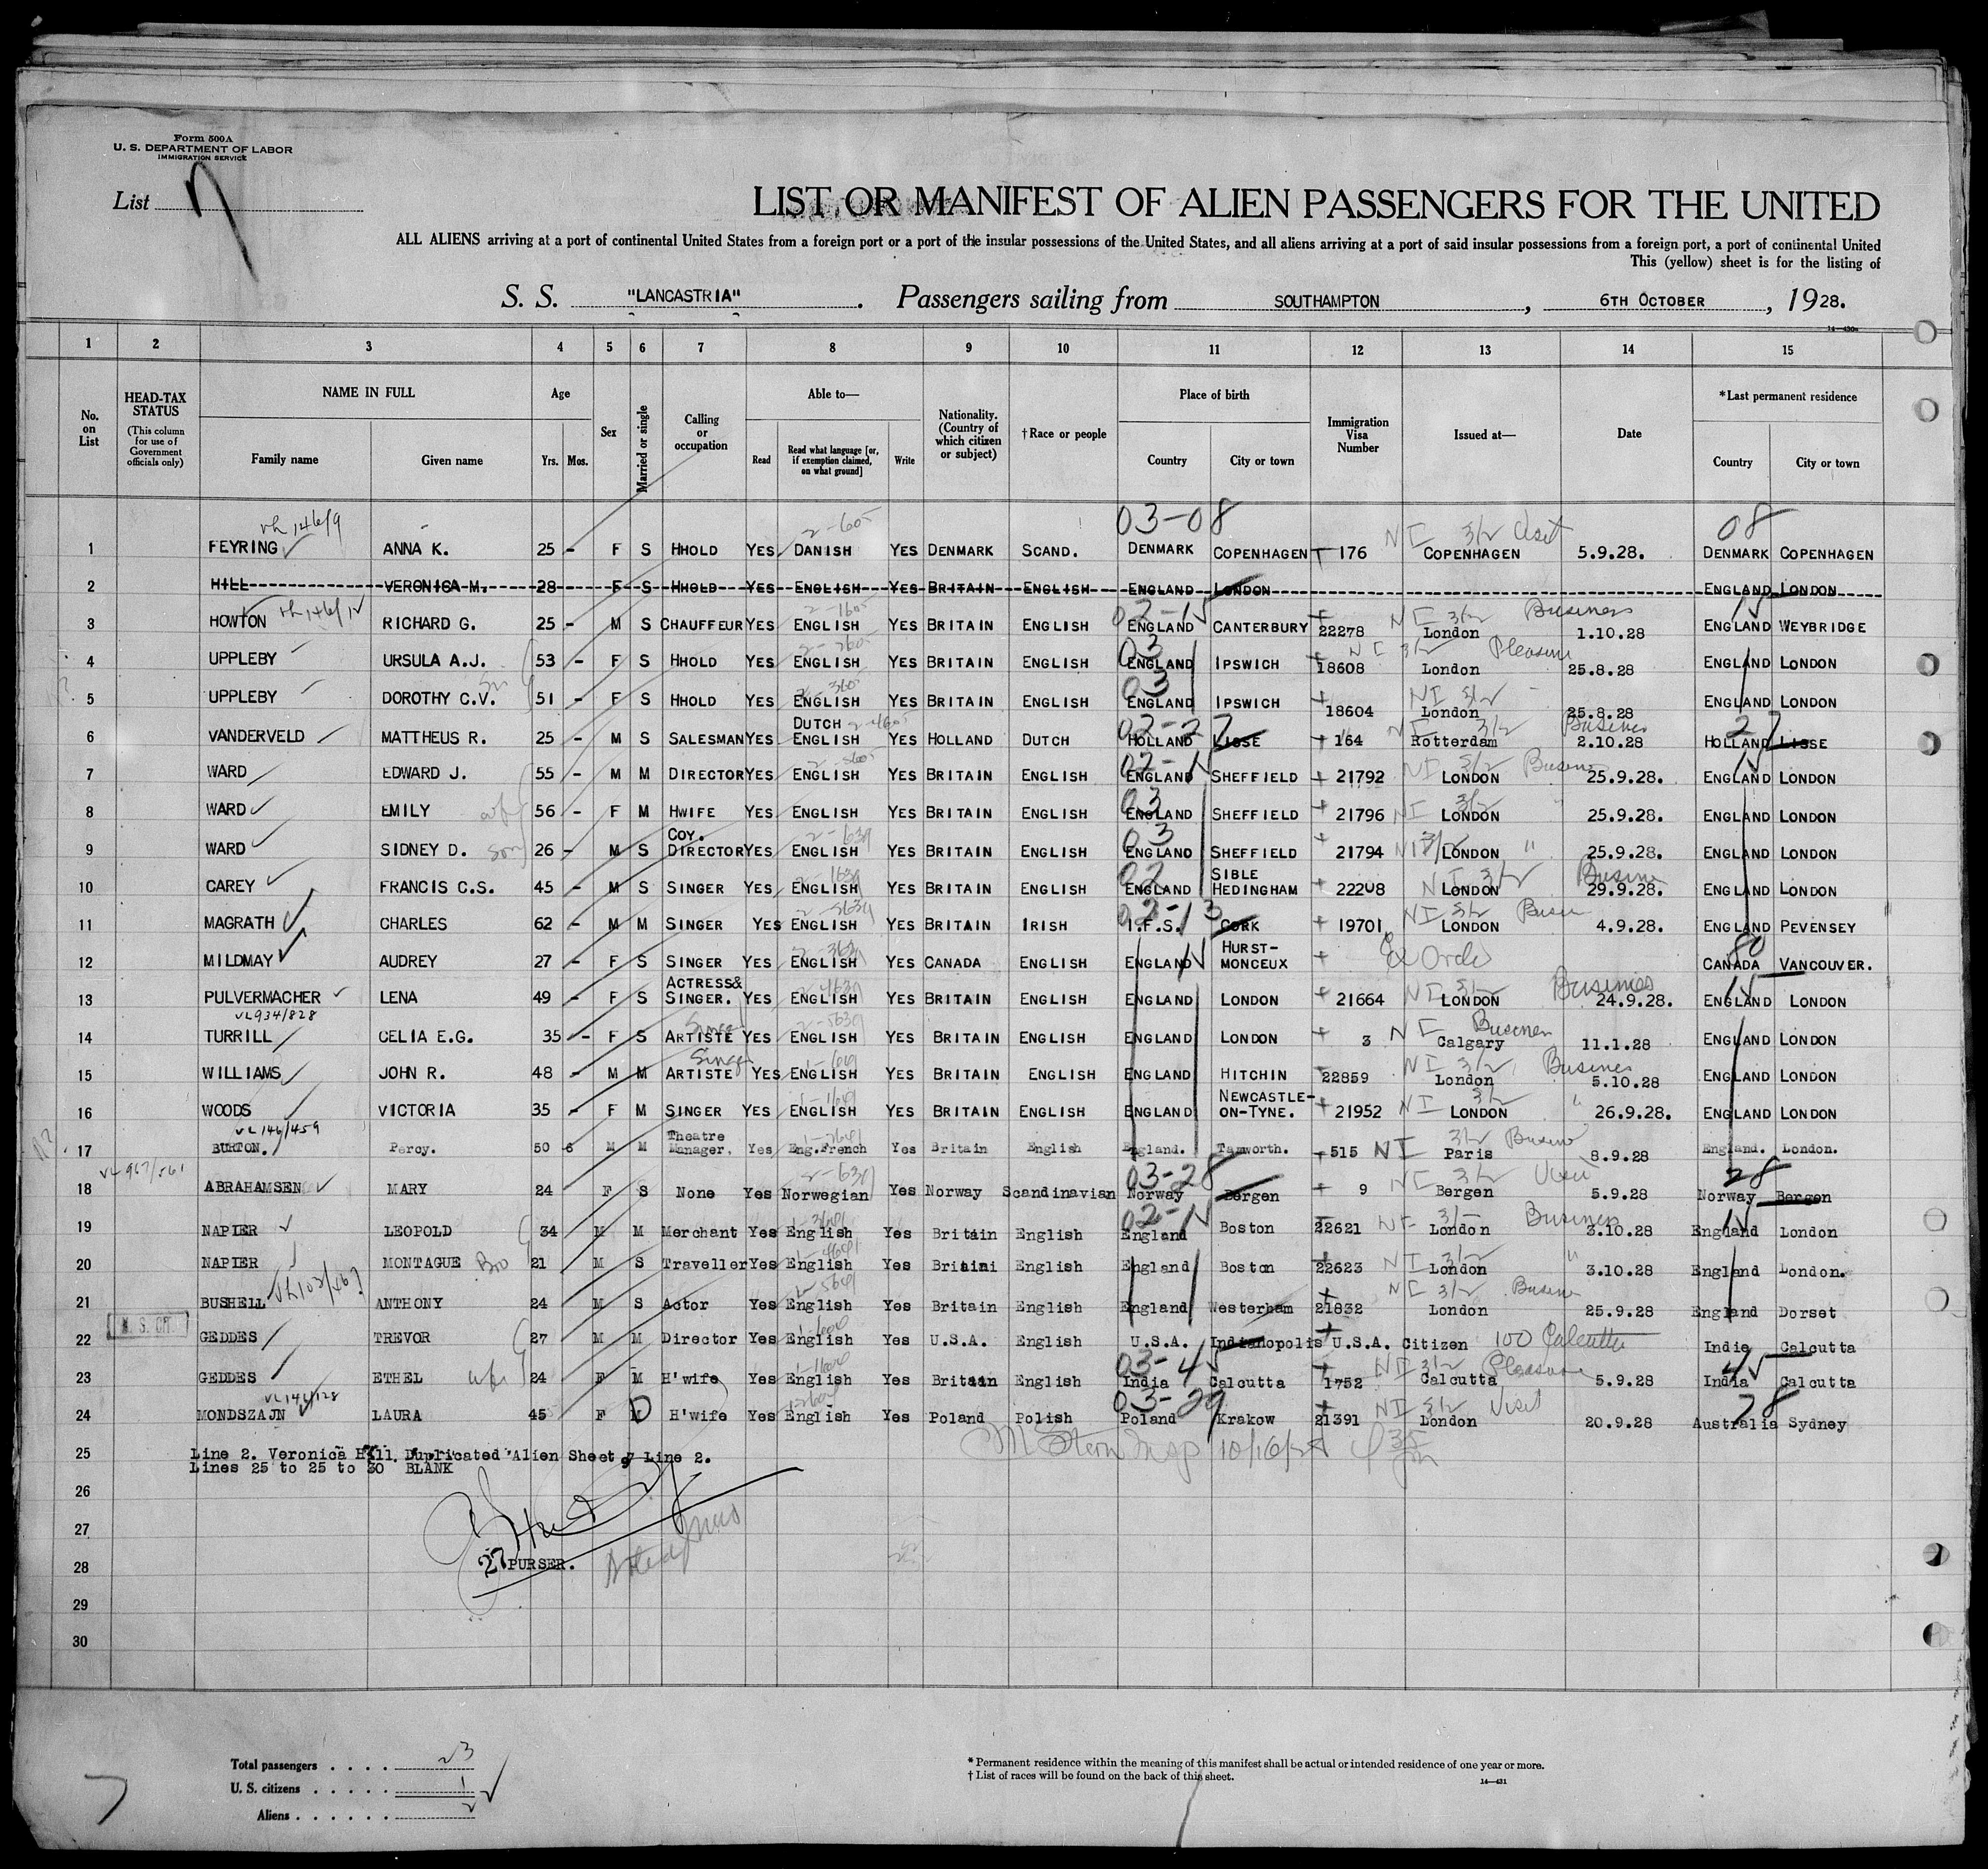 Form 500A
U. S. DEPARTMENT OF LABOR
IMMIGRATION SERVICE
List 7
LIST OR MANIFEST OF ALIEN PASSENGERS FOR THE UNITED
ALL ALIENS arriving at a port of continental United States from a foreign port or a port of the insular possessions of the United States, and all aliens arriving at a port of said insular possessions from a foreign port, a port of continental United
This (yellow) sheet is for the listing of
S. S. "LANCASTRIA". Passengers sailing from SOUTHAMPTON, 6TH OCTOBER, 1928.
1 2 3 4 5 6 7 8 9 10 11 12 13 14 15
No. on List
HEAD-TAX STATUS (This column for use of Government officials only)
NAME IN FULL Family name Given name
Age Yrs. Mos.
Sex
Married or single
Calling or occupation
Able to— Read Read what language [or, if exemption claimed, on what ground] Write
Nationality. (Country of which citizen or subject)
† Race or people
Place of birth Country City or town
Immigration Visa Number
Issued at—
Date
* Last permanent residence Country City or town
03-08 NI 3/2 Visit 08
1 FEYRING ANNA K. 25 - F S HHOLD YES DANISH YES DENMARK SCAND. DENMARK COPENHAGEN 176 COPENHAGEN 5.9.28. DENMARK COPENHAGEN
2 HILL VERONICA M. 28 F S HHOLD YES ENGLISH YES BRITAIN ENGLISH ENGLAND LONDON ENGLAND LONDON
3 HOWTON RICHARD G. 25 - M S CHAUFFEUR YES ENGLISH YES BRITAIN ENGLISH ENGLAND CANTERBURY 22278 NI 3/2 Business London 1.10.28 ENGLAND WEYBRIDGE
4 UPPLEBY URSULA A.J. 53 - F S HHOLD YES ENGLISH YES BRITAIN ENGLISH 03 ENGLAND IPSWICH 18608 NI 3/2 Pleasure London 25.8.28 ENGLAND LONDON
5 UPPLEBY DOROTHY C.V. 51 - F S HHOLD YES ENGLISH YES BRITAIN ENGLISH 03 ENGLAND IPSWICH 18604 NI 3/2 London 25.8.28 ENGLAND LONDON
6 VANDERVELD MATTHEUS R. 25 - M S SALESMAN YES DUTCH ENGLISH YES HOLLAND DUTCH 02-27 HOLLAND LISSE 164 NI 3/2 Business Rotterdam 2.10.28 27 HOLLAND LISSE
7 WARD EDWARD J. 55 - M M DIRECTOR YES ENGLISH YES BRITAIN ENGLISH ENGLAND SHEFFIELD 21792 NI 3/2 LONDON 25.9.28. ENGLAND LONDON
8 WARD EMILY wife 56 - F M HWIFE YES ENGLISH YES BRITAIN ENGLISH 03 ENGLAND SHEFFIELD 21796 NI 3/2 LONDON 25.9.28. ENGLAND LONDON
9 WARD SIDNEY D. son 26 - M S COY. DIRECTOR YES ENGLISH YES BRITAIN ENGLISH 03 ENGLAND SHEFFIELD 21794 NI 3/2 LONDON " 25.9.28. ENGLAND LONDON
10 CAREY FRANCIS C.S. 45 - M S SINGER YES ENGLISH YES BRITAIN ENGLISH 02 ENGLAND SIBLE HEDINGHAM 22208 NI 3/2 LONDON 29.9.28. ENGLAND LONDON
11 MAGRATH CHARLES 62 - M M SINGER YES ENGLISH YES BRITAIN IRISH 02-13 I.F.S. CORK 19701 NI 3/2 LONDON 4.9.28. ENGLAND PEVENSEY
12 MILDMAY AUDREY 27 - F S SINGER YES ENGLISH YES CANADA ENGLISH ENGLAND HURST-MONCEUX 80 CANADA VANCOUVER.
13 PULVERMACHER LENA 49 - F S ACTRESS& SINGER. YES ENGLISH YES BRITAIN ENGLISH ENGLAND LONDON 21664 NI 3/2 LONDON Business 24.9.28. ENGLAND LONDON
VL934/828
14 TURRILL CELIA E.G. 35 - F S ARTISTE Singer YES ENGLISH YES BRITAIN ENGLISH ENGLAND LONDON 3 NI Business Calgary 11.1.28 ENGLAND LONDON
15 WILLIAMS JOHN R. 48 - M M ARTISTE Singer YES ENGLISH YES BRITAIN ENGLISH ENGLAND HITCHIN 22859 NI 3/2 Business London 5.10.28 ENGLAND LONDON
16 WOODS VICTORIA 35 - F M SINGER YES ENGLISH YES BRITAIN ENGLISH ENGLAND NEWCASTLE-ON-TYNE. 21952 NI 3/2 LONDON " 26.9.28. ENGLAND LONDON
VL146/459
17 BURTON. Percy. 50 6 M M Theatre Manager. Yes Eng.French Yes Britain English England. Tamworth. 515 NI 3/2 Paris 8.9.28 England. London.
18 ABRAHAMSEN MARY 24 F S None Yes Norwegian Yes Norway Scandinavian 03-28 Norway Bergen 9 NI 3/2 Visit Bergen 5.9.28 28 Norway Bergen
19 NAPIER LEOPOLD 34 M M Merchant Yes English Yes Britain English England Boston 22621 London Business 3.10.28 England London
20 NAPIER MONTAGUE Bro 21 M S Traveller Yes English Yes Britaini English England Boston 22623 NI 3/2 London " 3.10.28 England London.
21 BUSHELL ANTHONY 24 M S Actor Yes English Yes Britain English England Westerham 21832 NI 3/2 London 25.9.28 England Dorset
22 GEDDES TREVOR 27 M M Director Yes English Yes U.S.A. English U.S.A. Indianopolis U.S.A. Citizen 100 Calcutta India Calcutta
23 GEDDES ETHEL wife 24 F M H'wife Yes English Yes Britain English 03-45 India Calcutta 1752 NI 3/2 Pleasure Calcutta 5.9.28 45 India Calcutta
24 MONDSZAJN LAURA 45 F D H'wife Yes English Yes Poland Polish 03-29 Poland Krakow 21391 NI 3/2 Visit London 20.9.28 78 Australia Sydney
25 Line 2. Veronica Hill. Duplicated Alien Sheet 7 Line 2.
Lines 25 to 25 to 30 BLANK
26
27
28 27 PURSER.
29
30
Total passengers . . . . 23
U. S. citizens . . . . . 1
Aliens . . . . . .
* Permanent residence within the meaning of this manifest shall be actual or intended residence of one year or more.
† List of races will be found on the back of this sheet.
14—431
7